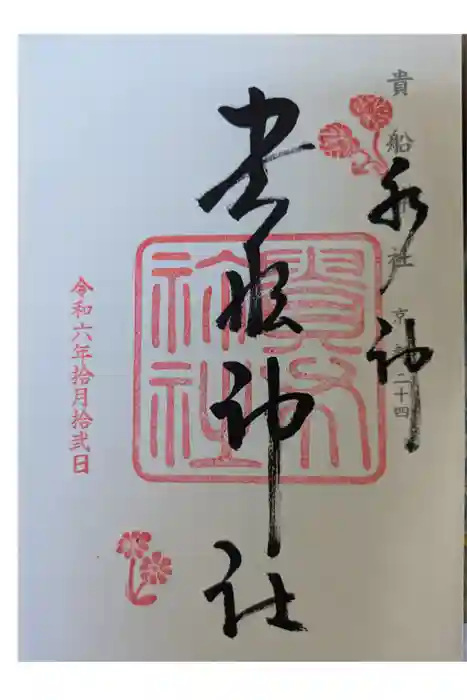 貴船神社 京 二十四
水神
貴船神社
令和六年拾月拾弐日